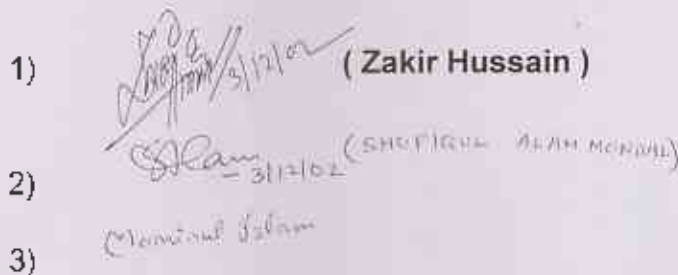 1) 3/12/02 ( Zakir Hussain )
2) SAlam - 3/12/02 (SHOFIQUL ALAM MONDAL)
3) Islam